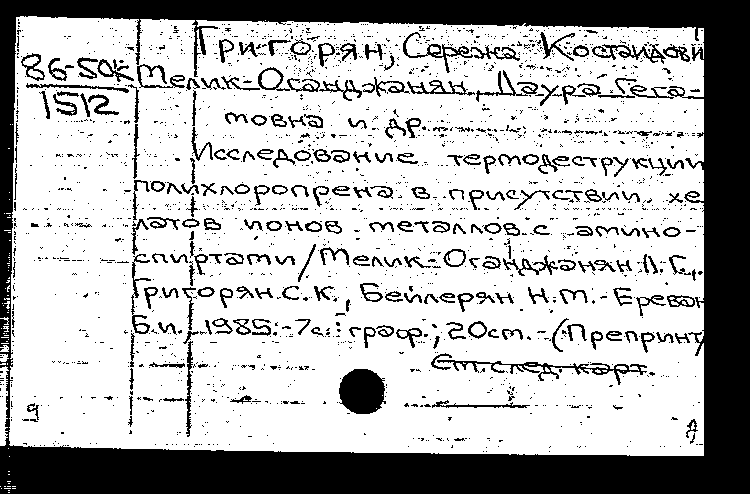 Григорян, Сережа Костандови
86-50к Мелик-Оганджанян, Лаура Гега-
1512
мовна и др.
Исследование термодеструкции
полихлоропрена в присутствии хе
латов ионов металлов с амино-
спиртами/Мелик-Оганджанян Л.Г.,
Григорян С.К., Бейлерян Н.М.-Ереван
Б.и., 1985.-7с.: граф.; 20см.-(Препринт/
См. след. карт.
9